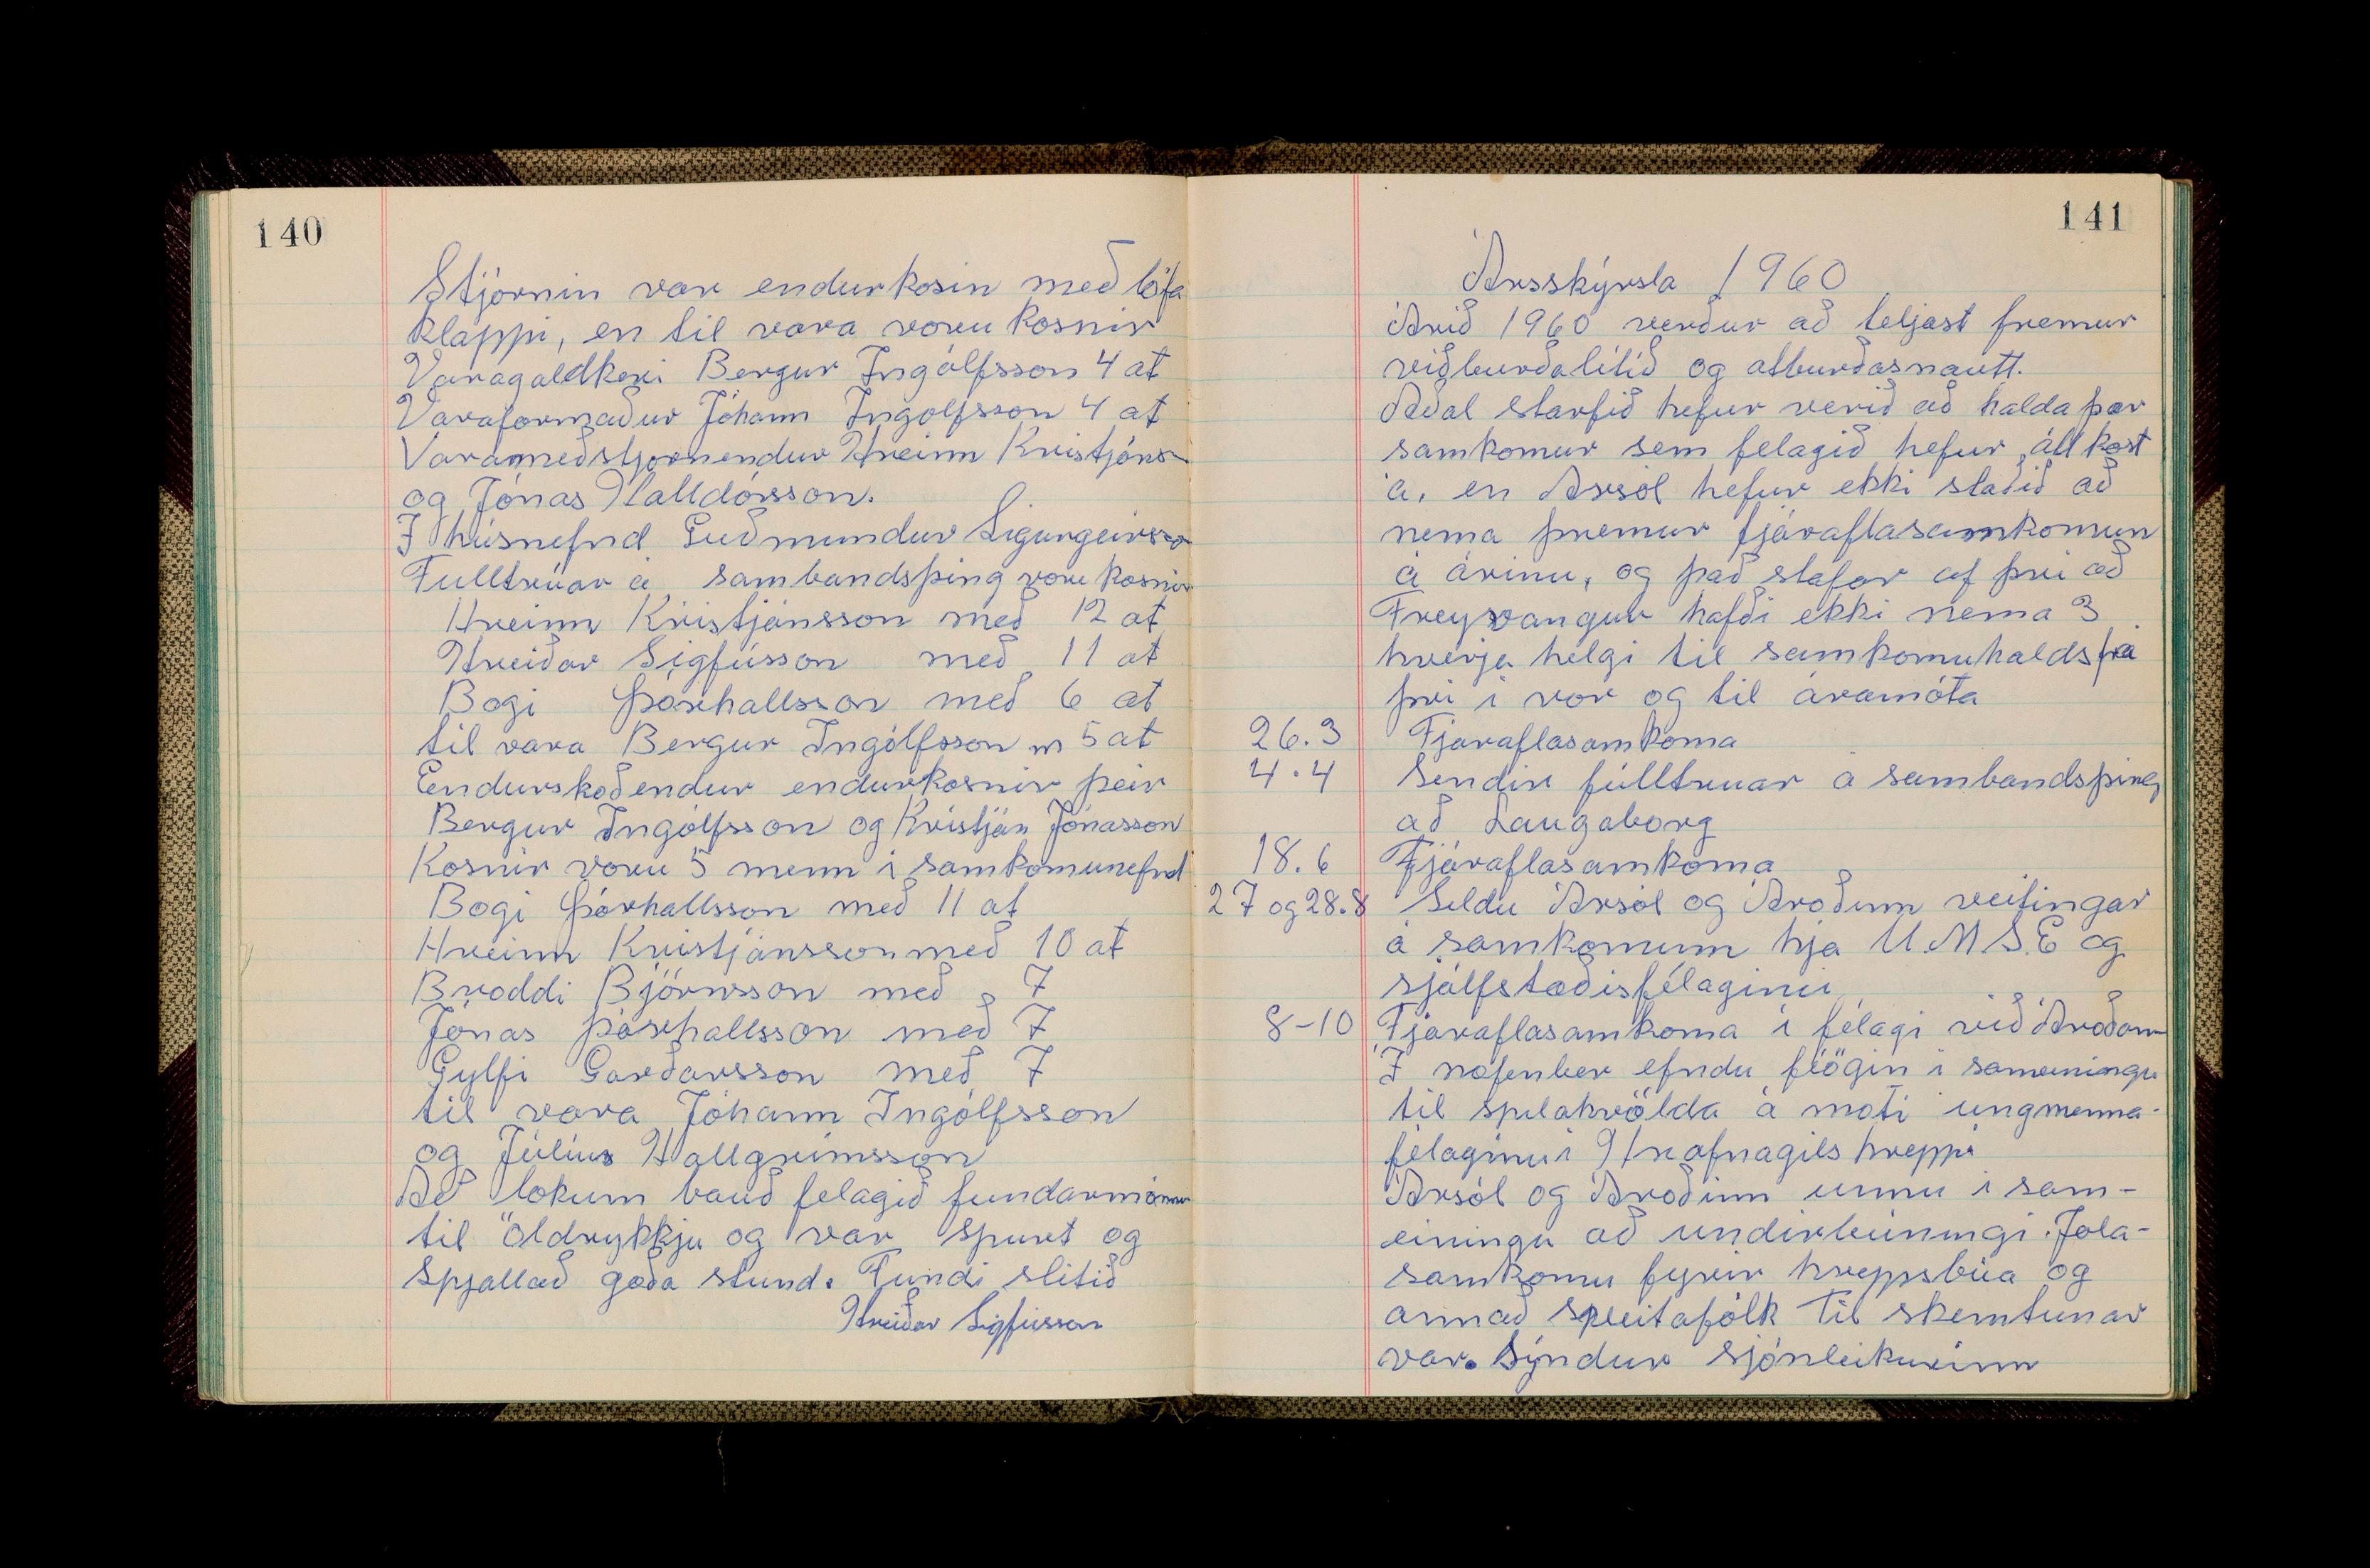 140
Stjórnin var endurkosin með lófa
klappi, en til vara voru kosnir
Varagaldkeri Bergur Ingólfsson 4 at
Varaformaður Jóhann Ingolfsson 4 at
Varameðstjornendur Hreinn Kristjáns-
og Jónas Halldórsson.
I húsnefnd Guðmundur Sigurgeirsso
Fulltrúar á sambandsþing voru kosnir
Hreinn Kristjánsson með 12 at
Hreiðar Sigfússon með 11 at
Bogi Þorhallsson með 6 at
til vara Bergur Ingólfsson m 5 at
Endurskoðendur endurkosnir þeir
Bergur Ingólfsson og Kristján Jónasson
Kosnir voru 5 menn í samkomunefnd
Bogi Þórhallsson með 11 at
Hreinn Kristjánsson með 10 at
Broddi Björnsson með 7
Jónas Þórhallsson með 7
Gylfi Garðarsson með 7
til vara Jóhann Ingólfsson
og Júlíus Hallgrímsson
Að lokum bauð felagið fundarmönnum
til öldrykkju og var spurt og
spjallað goða stund. Fundi slitið
Hreiðar Sigfússon
141
Ársskýrsla 1960
Árið 1960 verður að teljast fremur
viðburðalitið og atburðasnautt.
Aðal starfið hefur verið að halda þær
samkomur sem felagið hefur átt kost
á, en Ársól hefur ekki staðið að
nema þremur fjáraflasamkomun
á árinu, og það stafar af þvi að
Freyvangur hafði ekki nema 3
hverja helgi til samkomuhalds frá
þvi i vor og til áramóta
26.3 Fjaraflasamkoma
4.4 Sendir fulltruar á sambandsþing
að Laugaborg
18.6 Fjáraflasamkoma
27 og 28.8 Seldu Ársól og Árodinn veitingar
á samkomum hja U.M.S.E og
sjálfstæðisfélaginu
8-10 Fjáraflasamkoma í félagi við Árodan
I nofenber efndu fíögin i sameiningu
til spilakvölda á moti ungmenna-
félaginu i Hrafnagils hreppi
Ársól og Árodinn unnu i sam-
einingu að undirbúningi Jola-
samkomu fyrir hreppsbúa og
annað sveitafólk til skemtunar
var. Sýndur sjónleikurinn